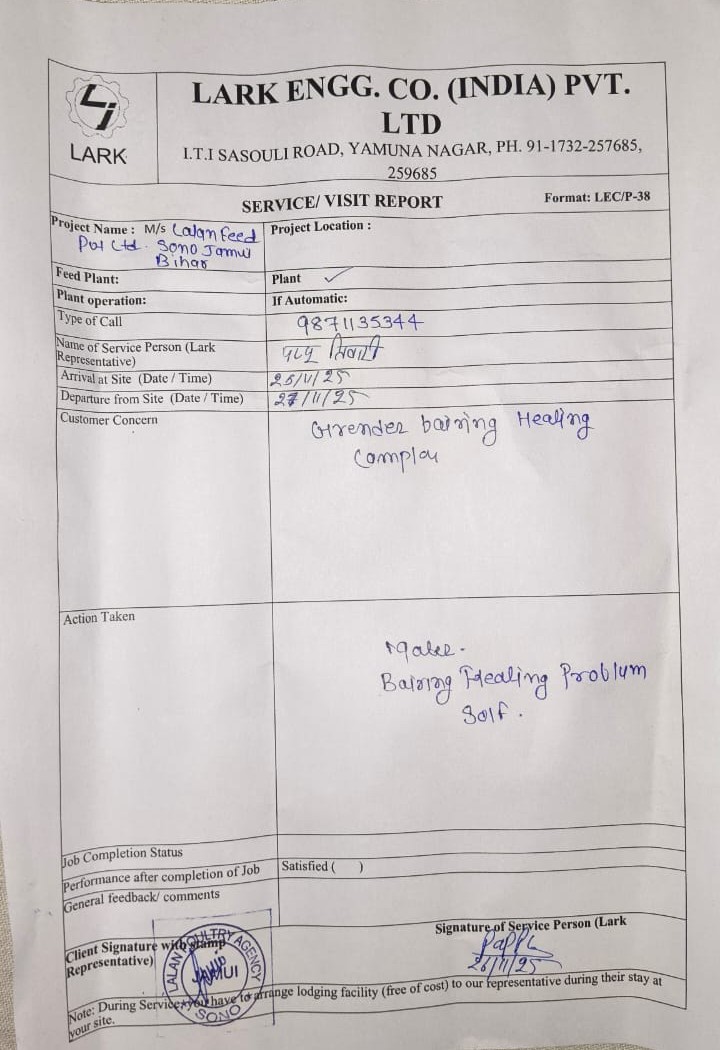 LARK
LARK ENGG. CO. (INDIA) PVT.
LTD
I.T.I SASOULI ROAD, YAMUNA NAGAR, PH. 91-1732-257685,
259685
SERVICE/ VISIT REPORT
Format: LEC/P-38
Project Name : M/s Lalan Feed
Pvt Ltd. Sono Jamui
Bihar
Project Location :
Feed Plant:
Plant ✓
Plant operation:
If Automatic:
Type of Call
9871135344
Name of Service Person (Lark
Representative)
पप्पु तिवारी
Arrival at Site (Date / Time)
25/11/25
Departure from Site (Date / Time)
27/11/25
Customer Concern
Grender bairing Healing
Complan
Action Taken
Bairing Healing Problum
Solf.
Job Completion Status
Performance after completion of Job
Satisfied ( )
General feedback/ comments
Client Signature with stamp
Representative)
LALAN POULTRY AGENCY
JAMUI
SONO
Signature of Service Person (Lark
Pappu
26/11/25
Note: During Service you have to arrange lodging facility (free of cost) to our representative during their stay at
your site.